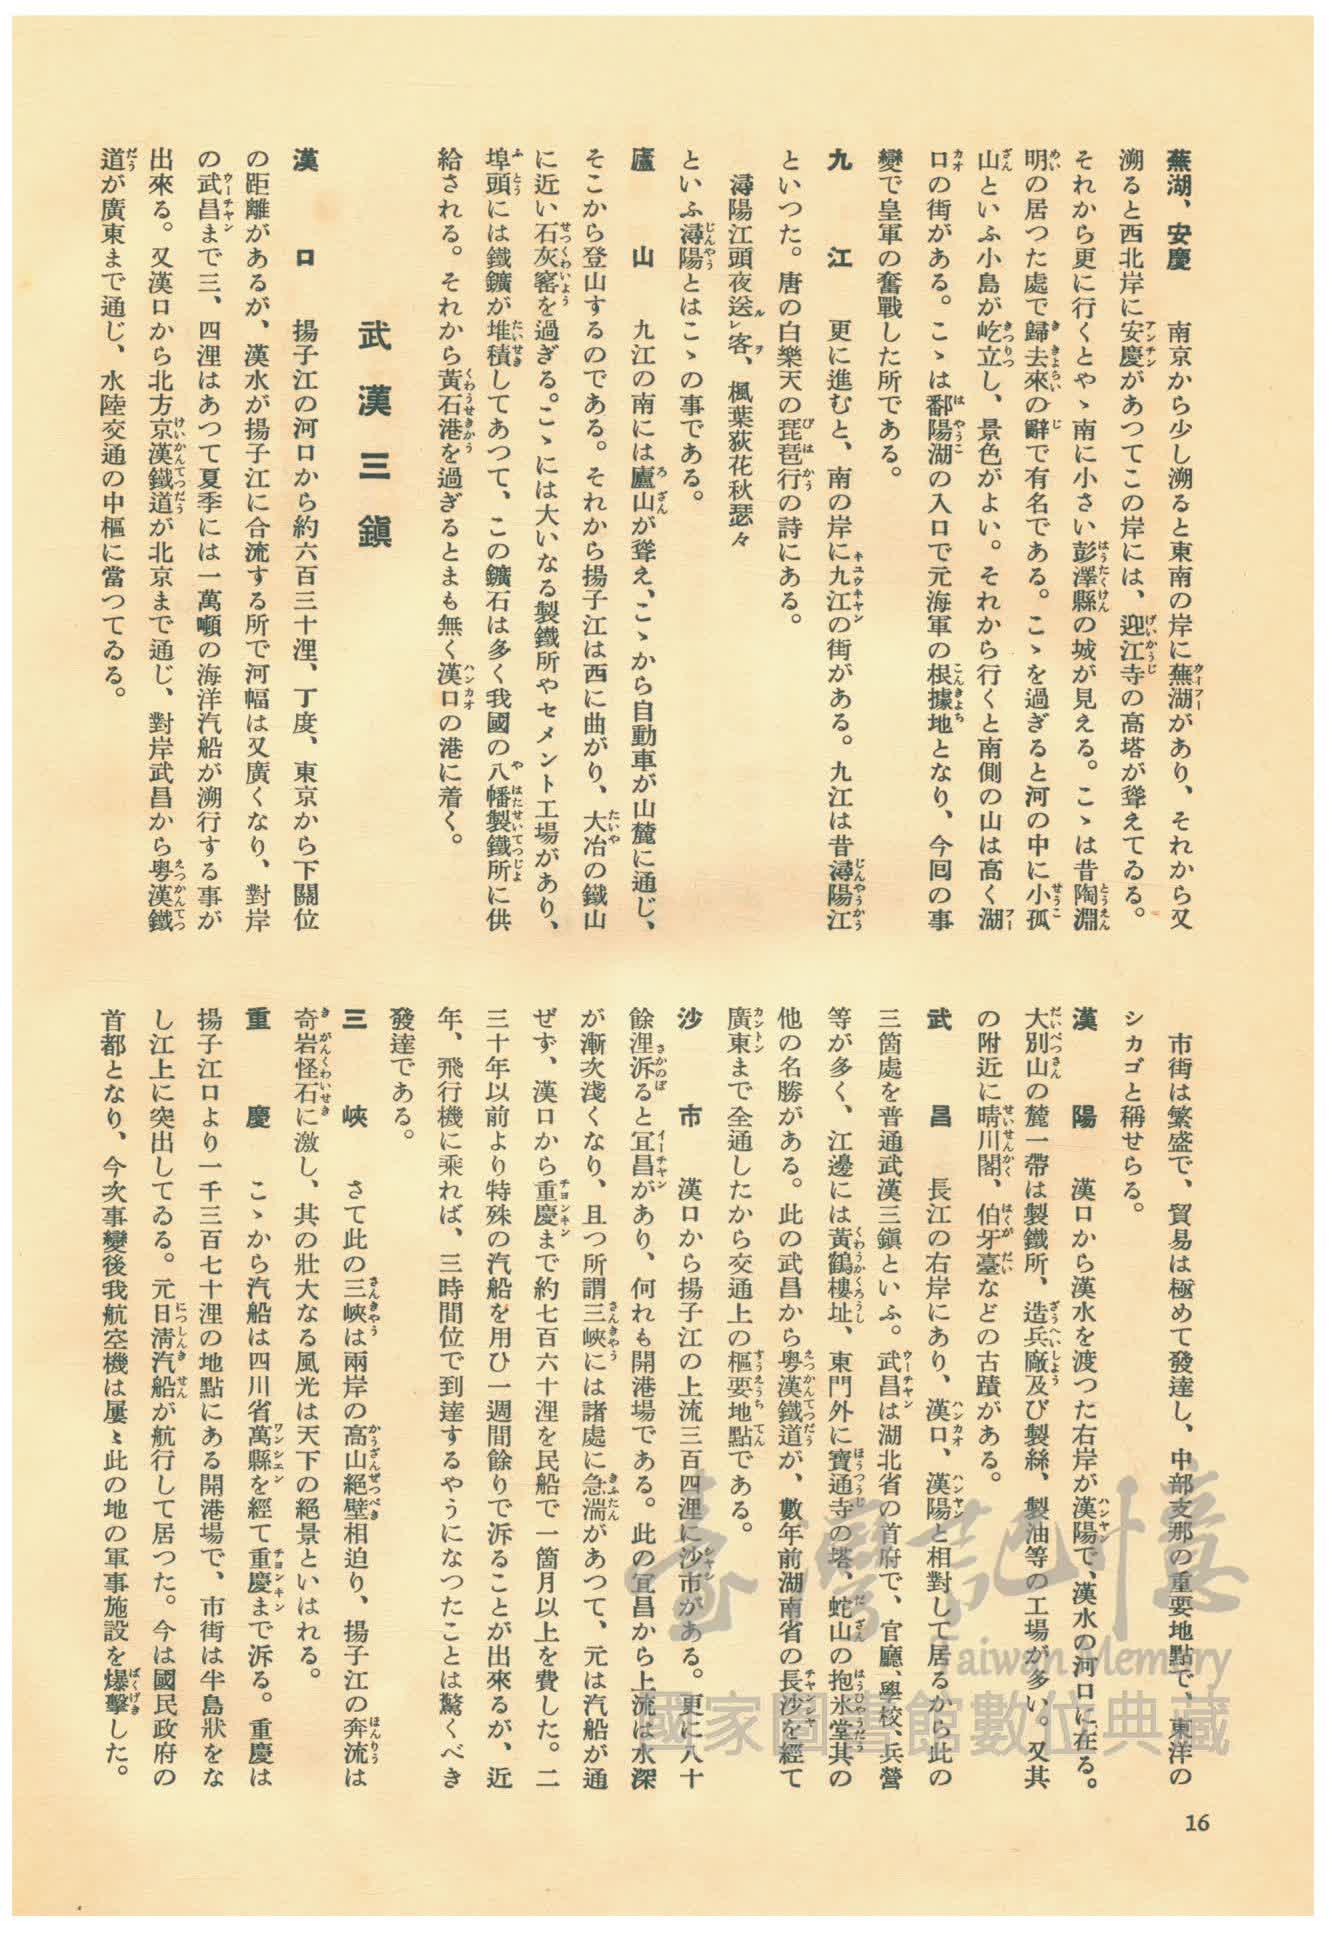 蕪湖、安慶　南京から少し溯ると東南の岸に蕪湖があり、それから又
溯ると西北岸に安慶があつてこの岸には、迎江寺の高塔が聳えてゐる。
それから更に行くとやゝ南に小さい彭澤縣の城が見える。こゝは昔陶淵
明の居つた處で歸去來の辭で有名である。こゝを過ぎると河の中に小孤
山といふ小島が屹立し、景色がよい。それから行くと南側の山は高く湖
口の街がある。こゝは鄱陽湖の入口で元海軍の根據地となり、今囘の事
變で皇軍の奮戰した所である。
九江　更に進むと、南の岸に九江の街がある。九江は昔潯陽江
といつた。唐の白樂天の琵琶行の詩にある。
潯陽江頭夜送ルレ客ヲ、楓葉荻花秋瑟々
といふ潯陽とはこゝの事である。
廬山　九江の南には廬山が聳え、こゝから自動車が山麓に通じ、
そこから登山するのである。それから揚子江は西に曲がり、大冶の鐵山
に近い石灰窰を過ぎる。こゝには大いなる製鐵所やセメント工場があり、
埠頭には鐵鑛が堆積してあつて、この鑛石は多く我國の八幡製鐵所に供
給される。それから黃石港を過ぎるとまも無く漢口の港に着く。
武漢三鎭
漢口　揚子江の河口から約六百三十浬、丁度、東京から下關位
の距離があるが、漢水が揚子江に合流する所で河幅は又廣くなり、對岸
の武昌まで三、四浬はあつて夏季には一萬噸の海洋汽船が溯行する事が
出來る。又漢口から北方京漢鐵道が北京まで通じ、對岸武昌から粵漢鐵
道が廣東まで通じ、水陸交通の中樞に當つてゐる。
市街は繁盛で、貿易は極めて發達し、中部支那の重要地點で、東洋の
シカゴと稱せらる。
漢陽　漢口から漢水を渡つた右岸が漢陽で、漢水の河口に在る。
大別山の麓一帶は製鐵所、造兵廠及び製絲、製油等の工場が多い。又其
の附近に晴川閣、伯牙臺などの古蹟がある。
武昌　長江の右岸にあり、漢口、漢陽と相對して居るから此の
三箇處を普通武漢三鎭といふ。武昌は湖北省の首府で、官廳、學校、兵營
等が多く、江邊には黃鶴樓址、東門外に寶通寺の塔、蛇山の抱氷堂其の
他の名勝がある。此の武昌から粵漢鐵道が、數年前湖南省の長沙を經て
廣東まで全通したから交通上の樞要地點である。
沙市　漢口から揚子江の上流三百四浬に沙市がある。更に八十
餘浬泝ると宜昌があり、何れも開港場である。此の宜昌から上流は水深
が漸次淺くなり、且つ所謂三峽には諸處に急湍があつて、元は汽船が通
ぜず、漢口から重慶まで約七百六十浬を民船で一箇月以上を費した。二
三十年以前より特殊の汽船を用ひ一週間餘りで泝ることが出來るが、近
年、飛行機に乘れば、三時間位で到達するやうになつたことは驚くべき
發達である。
三峽　さて此の三峽は兩岸の高山絕壁相迫り、揚子江の奔流は
奇岩怪石に激し、其の壯大なる風光は天下の絕景といはれる。
重慶　こゝから汽船は四川省萬縣を經て重慶まで泝る。重慶は
揚子江口より一千三百七十浬の地點にある開港場で、市街は半島狀をな
し江上に突出してゐる。元日淸汽船が航行して居つた。今は國民政府の
首都となり、今次事變後我航空機は屢〻此の地の軍事施設を爆擊した。
16
臺灣記憶
Taiwan Memory
國家圖書館數位典藏